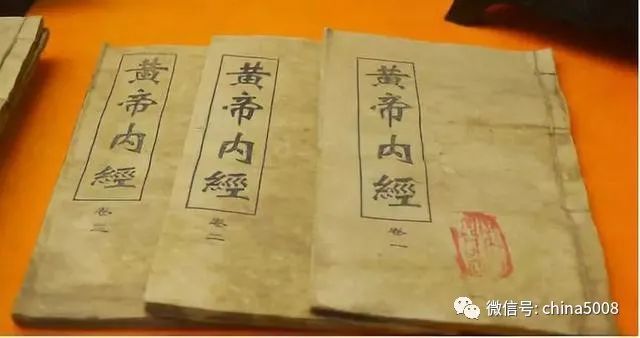 黃帝内經
卷三
黃帝内經
卷二
黃帝内經
卷一
微信号: china5008